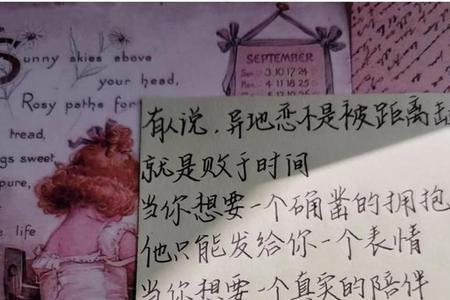 unny skies above
your head,
Rosy paths for
tread,
gs sweet
pure,
e life
SEPTEMBER
3 10 17 24
有人说,异地恋不是被距离击
就是败于时间
当你想要一个确凿的拥抱
他只能发给你一个表情
当你想要一个真实的陪伴